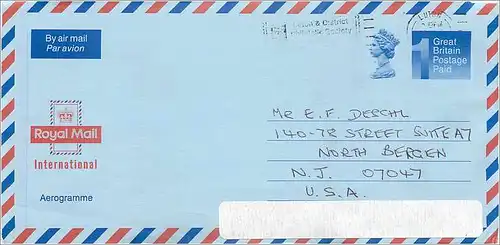 By air mail
Par avion
& District
Society
Great
Britain
Postage
Paid
1
Royal Mail
International
Aerogramme
Mr E. F. DESCHL
140-78 STREET SUITE A7
NORTH BERGEN
N.J. 07047
U.S.A.